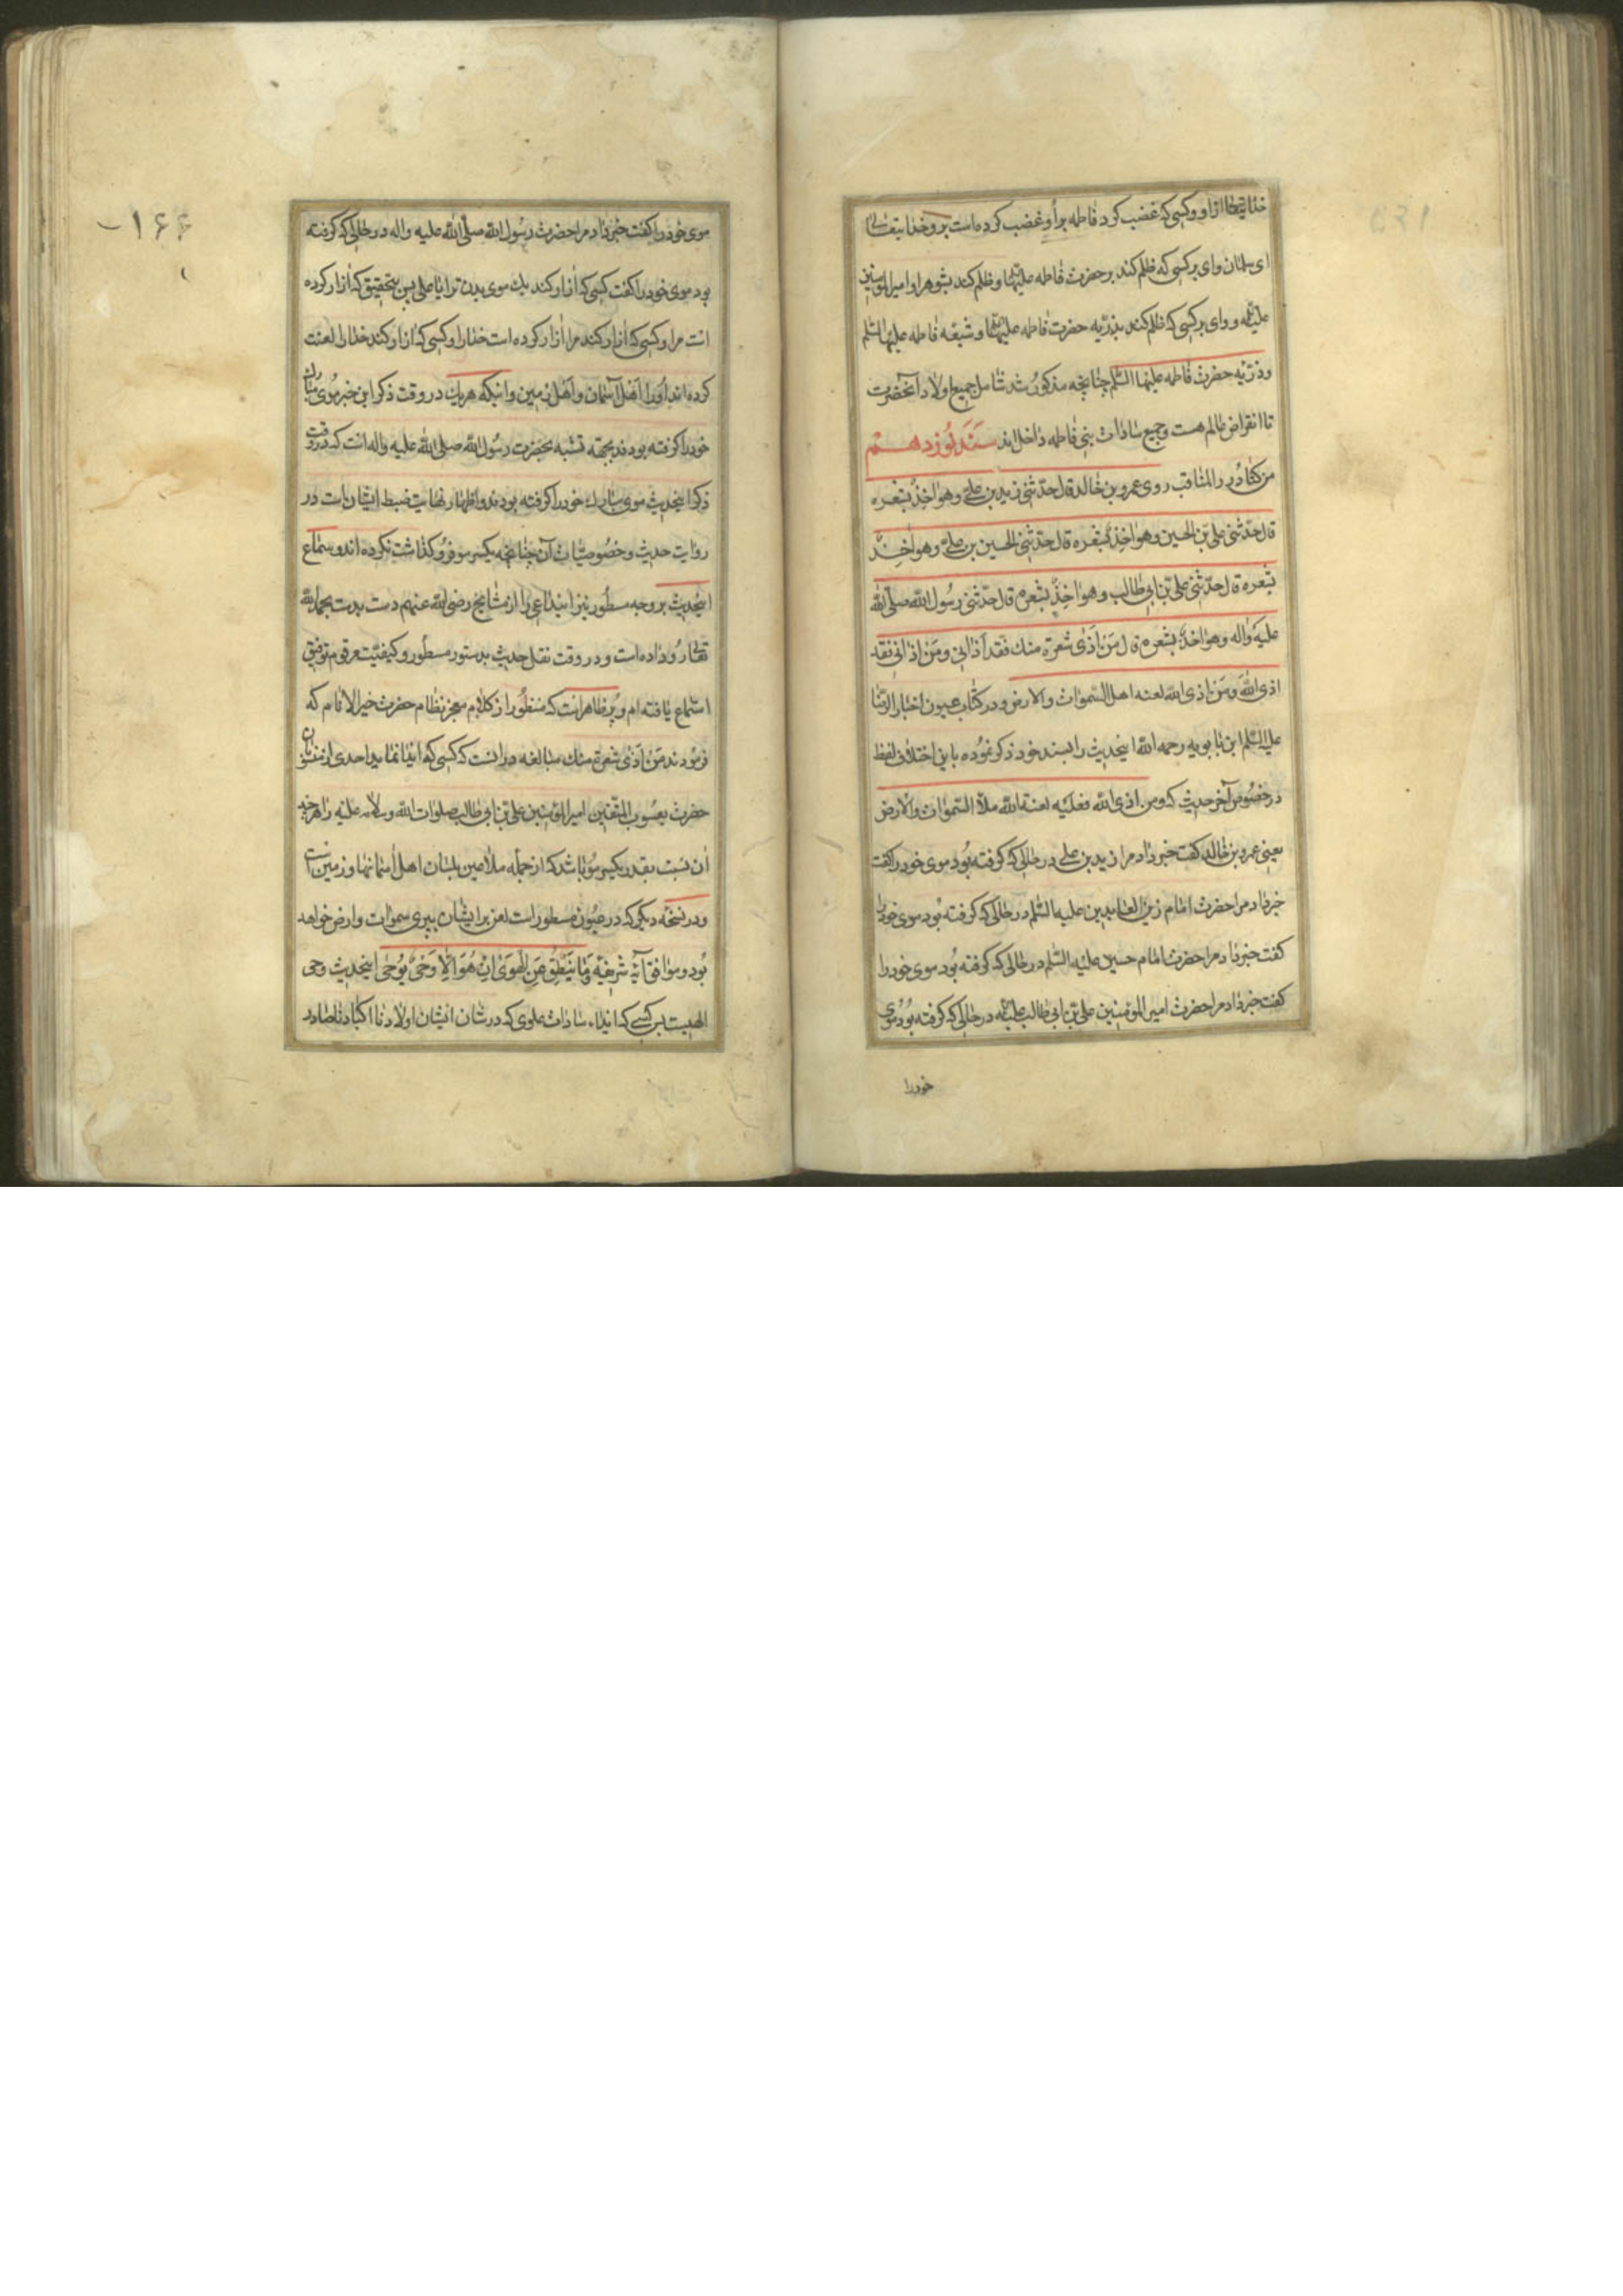 خدایتعالی از او و کسی که غضب کرد فاطمه بر او غضب کرده است بر او خدایتعالی
ای سلمان وای بر کسی که ظلم کند بر حضرت فاطمه علیها و ظلم کند بشوهر او امیر المؤمنین
علیه و وای بر کسی که ظلم کند بذریه حضرت فاطمه علیها و شیعه فاطمه علیها السّلم
وذرّیه حضرت فاطمه علیها السّلم چنانچه مذکور شد شامل جمیع اولاد آنحضرت
تا انقراض عالم هست وجمیع سادات بنی فاطمه داخل اند سند نوزدهم
من کتاب در المناقب روی عمرو بن خالد قال حدّثنی زید بن علیّ وهو اخذٌ بشعره
قال حدّثنی علی بن الحسین وهو اخذٌ بشعره قال حدّثنی الحسین بن علیّ وهو اخذٌ
بشعره قال حدّثنی علیّ بن ابی طالب وهو اخذٌ بشعره قال حدّثنی رسول الله صلّی الله
علیه واله وهو اخذٌ بشعره قال من اذی شعرة منك فقد اذانی ومن اذانی فقد
اذی الله ومن اذی الله لعنه اهل السّموات والارض و در کتاب عیون اخبار الرضا
علیه السّلم ابن بابویه رحمه الله اینحدیث را بسند خود ذکر نموده باین اختلاف لفظ
در خصوص آخر حدیث که ومن اذی الله فعلیه لعنة الله ملأ السّموات والارض
یعنی عمرو بن خالد گفت خبر داد مرا زید بن علی در حالی که گرفته بود موی خود را گفت
خبر داد مرا حضرت امام زین العابدین علیه السّلم در حالی که گرفته بود موی خود را
گفت خبر داد مرا حضرت امام حسین علیه السّلم در حالی که گرفته بود موی خود را
گفت خبر داد مرا حضرت امیر المؤمنین علیّ بن ابی طالب علیه در حالی که گرفته بود موی
خود را
۱۶۶
موی خود را گفت خبر داد مرا حضرت رسول الله صلّی الله علیه واله در حالی که گرفته
بود موی خود را گفت کسی که ازار کند یك موی بدن ترا یا علی پس بتحقیق که ازار کرده
است مرا و کسی که ازار کند مرا ازار کرده است خدا را و کسی که ازار کند خدا را لعنت
کرده اند او را اهل آسمان واهل زمین و اینکه هر یك در وقت ذکر این خبر موی مبارك
خود را گرفته بودند بجهة تشبه بحضرت رسول الله صلی الله علیه واله است که در وقت
ذکر اینحدیث موی مبارك خود را گرفته بودند و اظهار نهایت ضبط ایشان است در
روایت حدیث وخصوصیّات آن چنانچه یکسر مو فرو گذاشت نکرده اند و سماع
اینحدیث بر وجه مسطور نیز ایندا عی را از مشایخ رضی الله عنهم دست بدست بحمد الله
تعالی رو داده است و در وقت نقل حدیث بدستور مسطور و کیفیّت مرقوم توفیق
استماع یافته ام و پر ظاهر است که منظور از کلام معجز نظام حضرت خیر الانام که
فرمودند من اذی شعرة منك مبالغه در انست که کسی که ایذا نماید احدی از منسوبان
حضرت یعسوب المتقین امیر المؤمنین علیّ بن ابی طالب صلوات الله وسلامه علیه را هر چند
ان نسبت بقدر یکسر مو باشد که از جمله ملاعین بلسان اهل اسمانها و زمین است
و در نسخه دیگر که در عیون مسطور است لعن بر ایشان بپری سموات وارض خواهد
بود وموافق آیه شریفه وَما یَنطِقُ عَنِ الهَوی اِن هُوَ اِلّا وَحیٌ یُوحی اینحدیث وحی
الهیست پس کسی که ایذاء سادات علوی که در شان ایشان اولادنا اکبادنا صادر